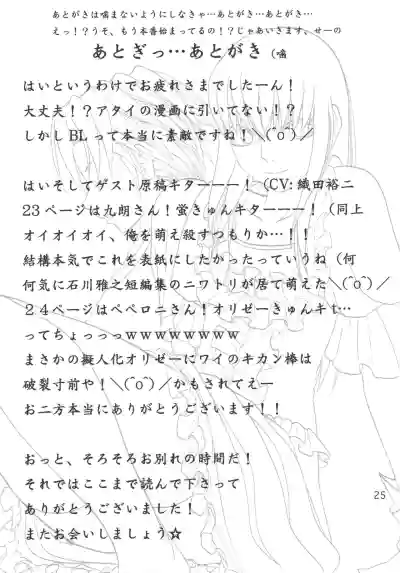 あとがきは噛まないようにしなきゃ…あとがき…あとがき…
えっ！?うそ、もう本番始まってるの！?じゃあいきます、せーの
あとぎっ…あとがき（噛
はいというわけでお疲れさまでしたーん！
大丈夫！?アタイの漫画に引いてない！?
しかしBLって本当に素敵ですね！＼(^o^)／
はいそしてゲスト原稿キターーー！（CV:織田裕二
23ページは九朗さん！蛍きゅんキターーー！（同上
オイオイオイ、俺を萌え殺すつもりか…！！
結構本気でこれを表紙にしたかったっていうね（何
何気に石川雅之短編集のニワトリが居て萌えた＼(^o^)／
24ページはペペロニさん！オリゼーきゅんキt…
ってちょっっっwwwwwwww
まさかの擬人化オリゼーにワイのキカン棒は
破裂寸前や！＼(^o^)／かもされてえー
お二方本当にありがとうございます！！
おっと、そろそろお別れの時間だ！
それではここまで読んで下さって
ありがとうございました！
またお会いしましょう☆
25